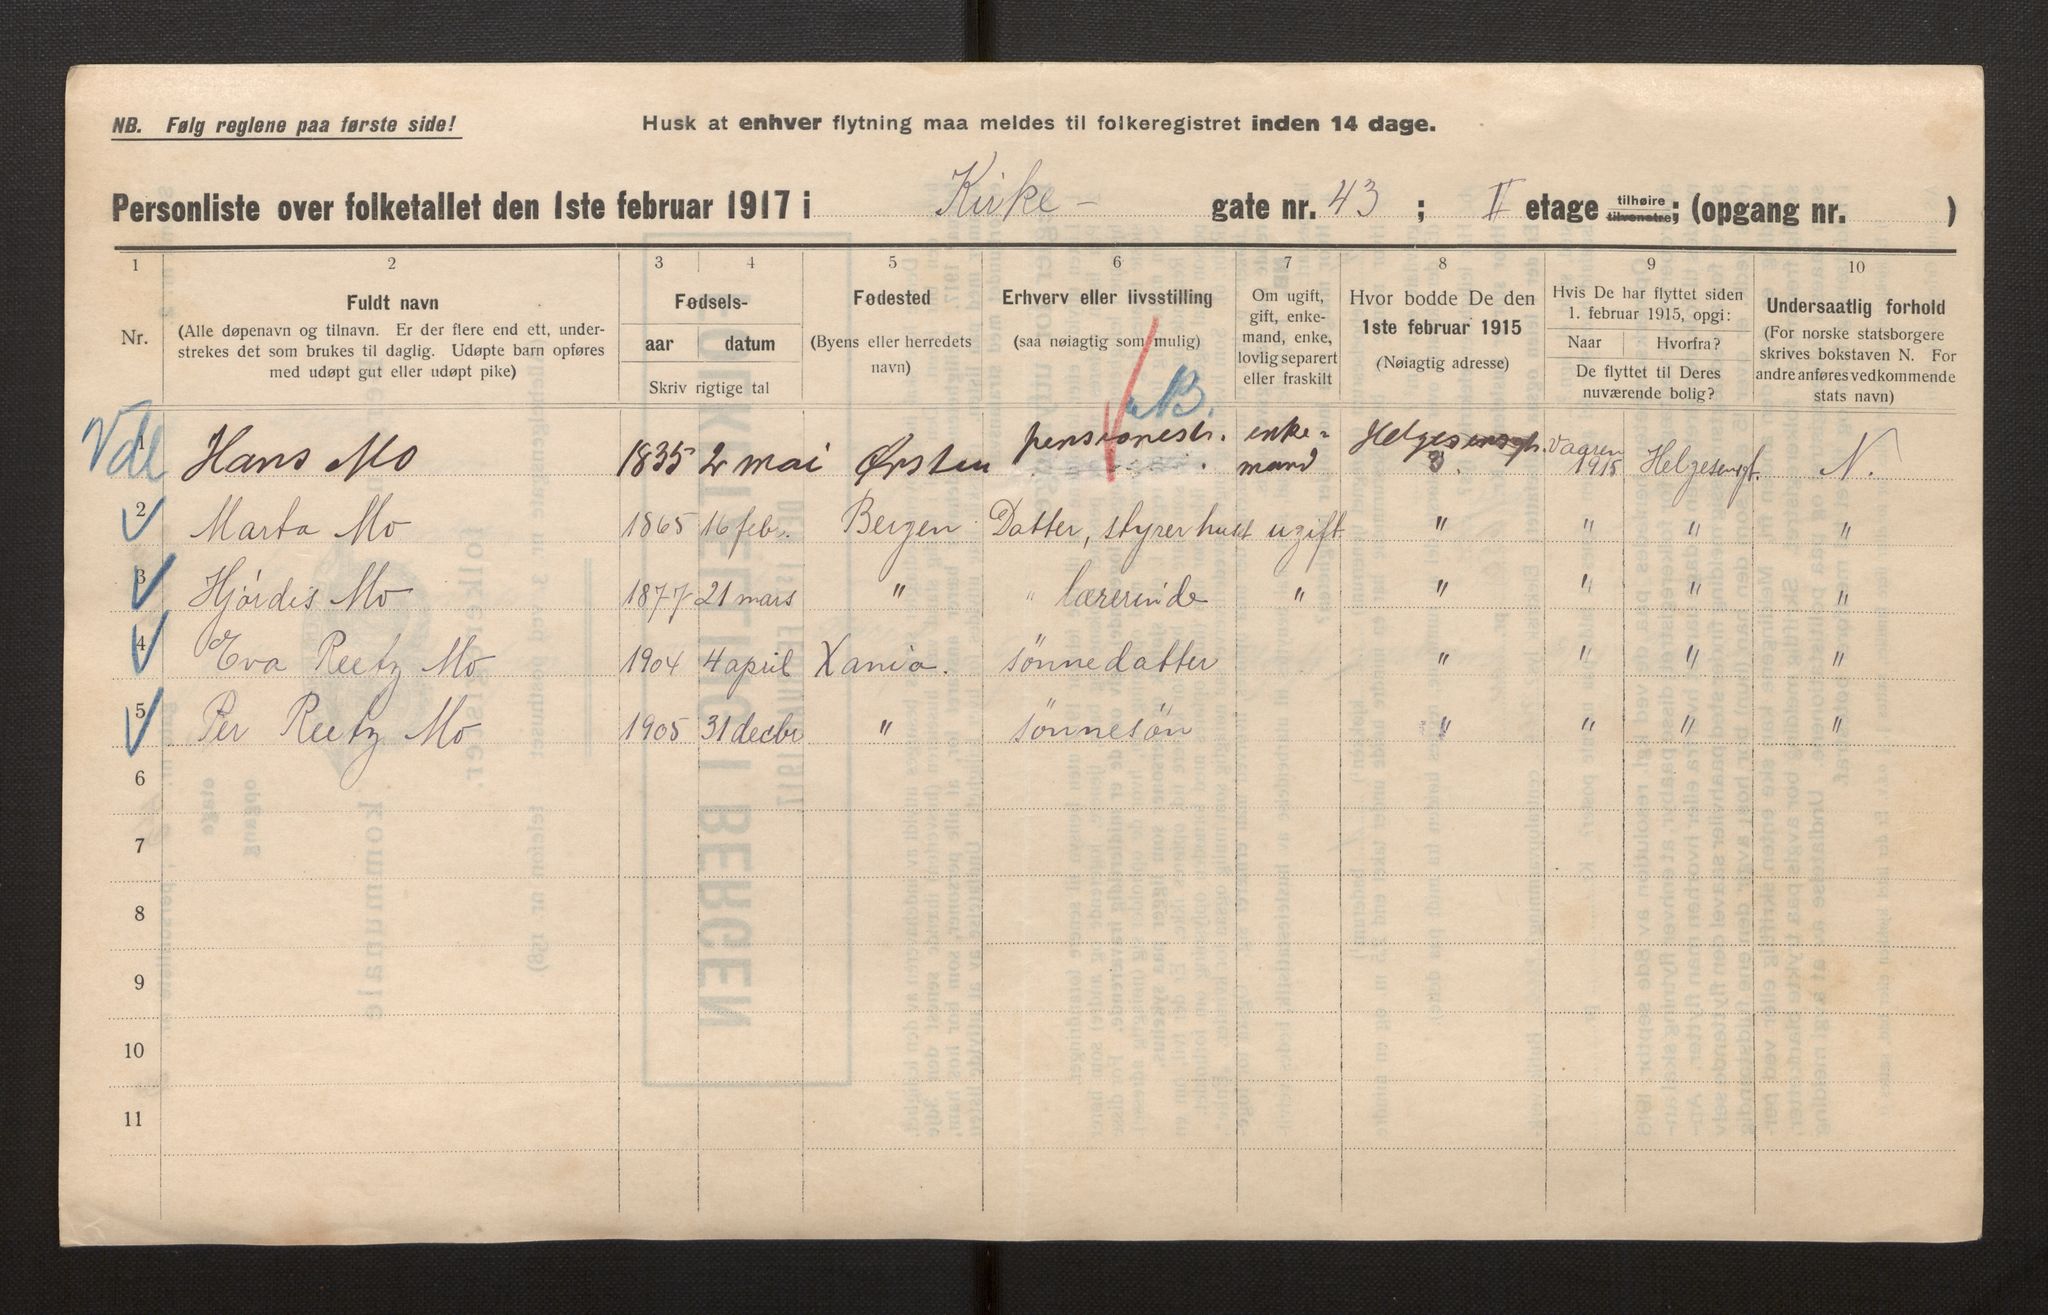 NB. Følg reglene paa første side!
Husk at enhver flytning maa meldes til folkeregistret inden 14 dage.
Personliste over folketallet den 1ste februar 1917 i Kirke- gate nr. 43 ; II etage tilhøire tilvenstre; (opgang nr. )
1 2 3 4 5 6 7 8 9 10
Nr.
Fuldt navn
(Alle døpenavn og tilnavn. Er der flere end ett, under-
strekes det som brukes til daglig. Udøpte barn opføres
med udøpt gut eller udøpt pike)
Fødsels-
aar datum
Skriv rigtige tal
Fødested
(Byens eller herredets
navn)
Erhverv eller livsstilling
(saa nøiagtig som mulig)
Om ugift,
gift, enke-
mand, enke,
lovlig separert
eller fraskilt
Hvor bodde De den
1ste februar 1915
(Nøiagtig adresse)
Hvis De har flyttet siden
1. februar 1915, opgi:
Naar Hvorfra?
De flyttet til Deres
nuværende bolig?
Undersaatlig forhold
(For norske statsborgere
skrives bokstaven N. For
andre anføres vedkommende
stats navn)
B.
Vdl 1 Hans Mo 1835 2 mai Ørsten pensionestr. enke-mand Helgesensgt. 3. Vaaren 1915 Helgesensgt. N.
2 Marta Mo 1865 16 feb. Bergen Datter, styrer huset ugift " " " "
3 Hjørdis Mo 1877 21 mars " " lærerinde " " " " "
4 Eva Reetz Mo 1904 4 april Xania. sønnedatter " " " "
5 Per Reetz Mo 1905 31 decbr " sønnesøn " " " "
6
7
8
9
10
11